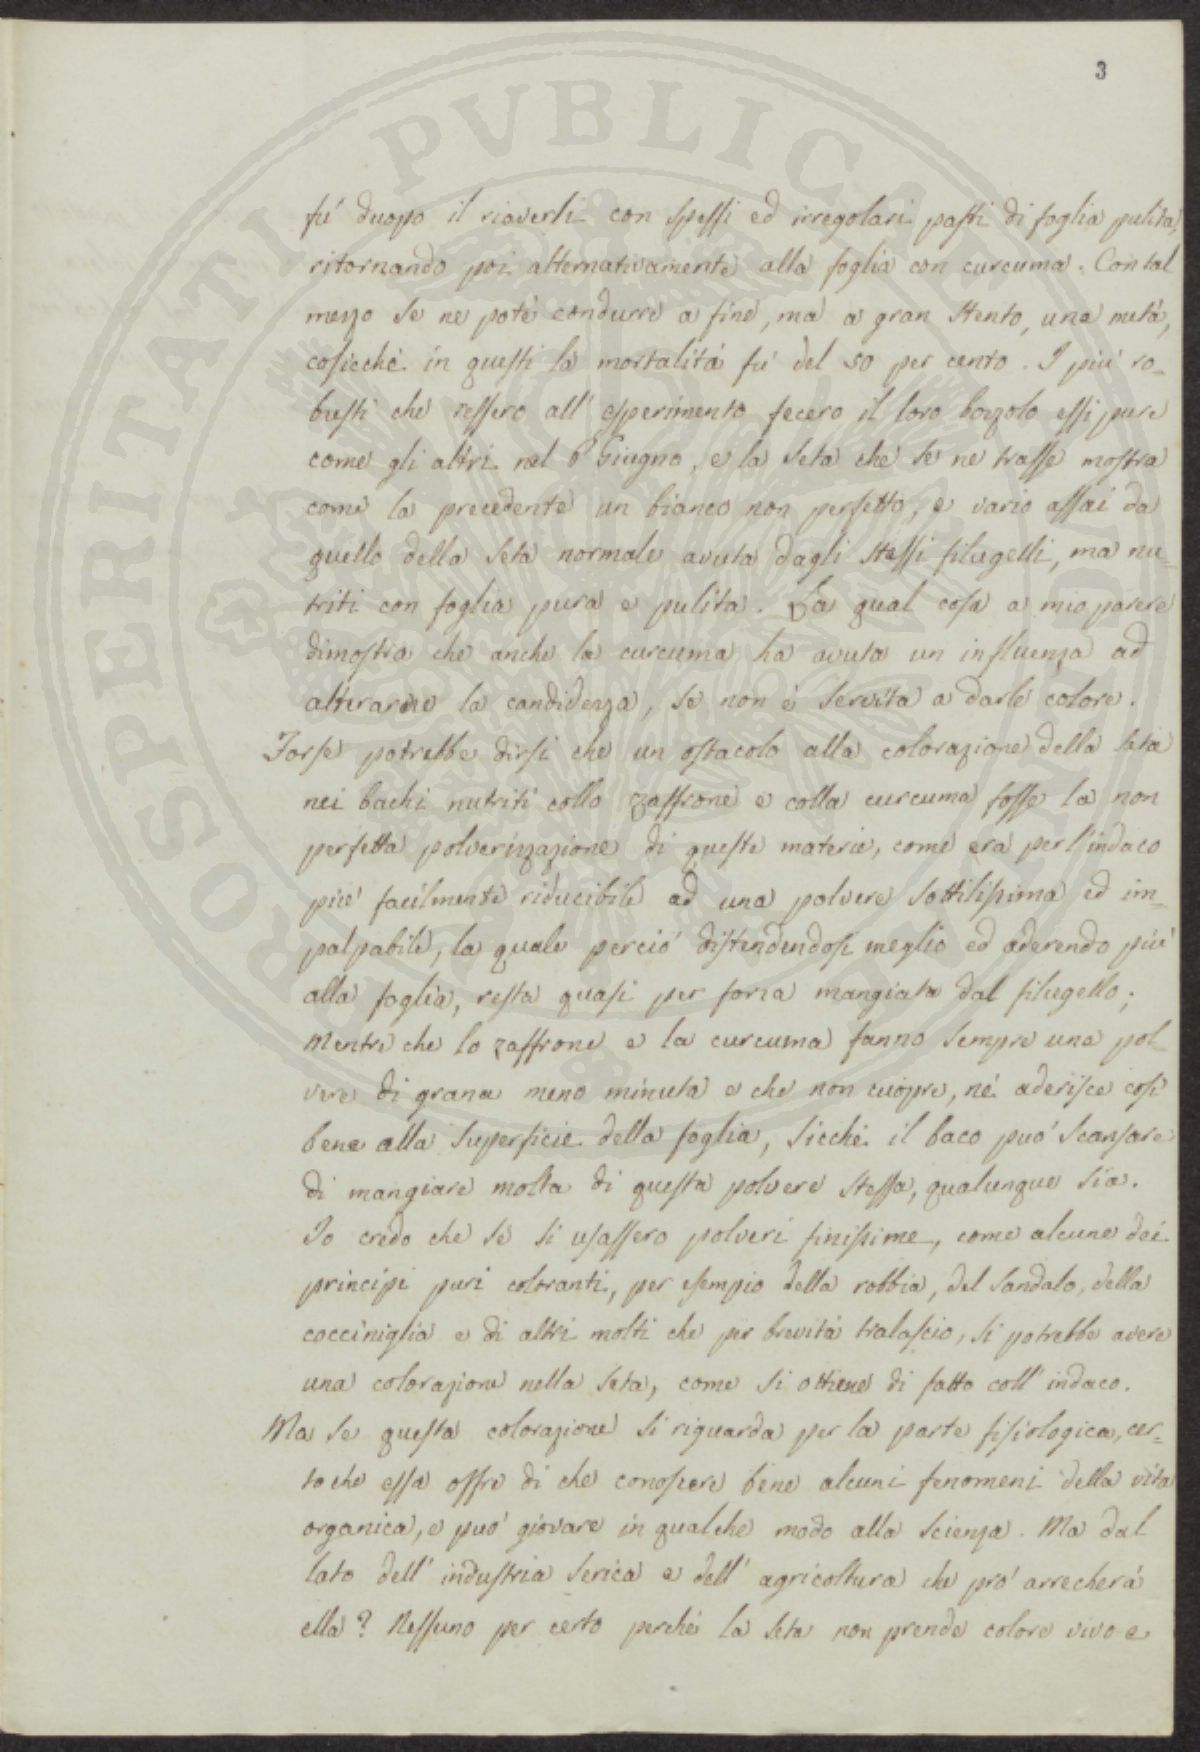 3
PROSPERITATI PVBLICAE
fu' duopo il riaverli con spessi ed irregolari pasti di foglia pulita,
ritornando poi alternativamente alla foglia con curcuma. Con tal
mezzo se ne potè condurre a fine, ma a gran stento, una metà,
cosicchè in questi la mortalità fu' del 50 per cento. I più ro-
busti che ressero all' esperimento fecero il loro bozzolo essi pure
come gli altri nel 8 Giugno, e la seta che se ne trasse mostra
come la precedente un bianco non perfetto, e vario assai da
quello della seta normale avuta dagli stessi filugelli, ma nu-
triti con foglia pura e pulita. La qual cosa a mio parere
dimostra che anche la curcuma ha avuta un influenza ad
alterarne la candidezza, se non è servita a darle colore.
Forse potrebbe dirsi che un ostacolo alla colorazione della seta
nei bachi nutriti collo zaffrone e colla curcuma fosse la non
perfetta polverizzazione di queste materie, come era per l'indaco
più facilmente riducibile ad una polvere sottilissima ed im-
palpabile, la quale perciò distendendosi meglio ed aderendo più
alla foglia, resta quasi per forza mangiata dal filugello;
Mentre che lo zaffrone e la curcuma fanno sempre una pol-
vere di grana meno minuta e che non cuopre, nè aderisce così
bene alla superficie della foglia, sicchè il baco può scansare
di mangiare molta di questa polvere stessa, qualunque sia.
Io credo che se si usassero polveri finissime, come alcune dei
principi puri coloranti, per esempio della robbia, del sandalo, della
cocciniglia e di altri molti che per brevità tralascio, si potrebbe avere
una colorazione nella seta, come si ottiene di fatto coll' indaco.
Ma se questa colorazione si riguarda per la parte fisiologica, cer-
to che essa offre di che conoscere bene alcuni fenomeni della vita
organica, e può giovare in qualche modo alla scienza. Ma dal
lato dell' industria serica e dell' agricoltura che prò arrecherà
ella? Nessuno per certo perchè la seta non prende colore vivo e